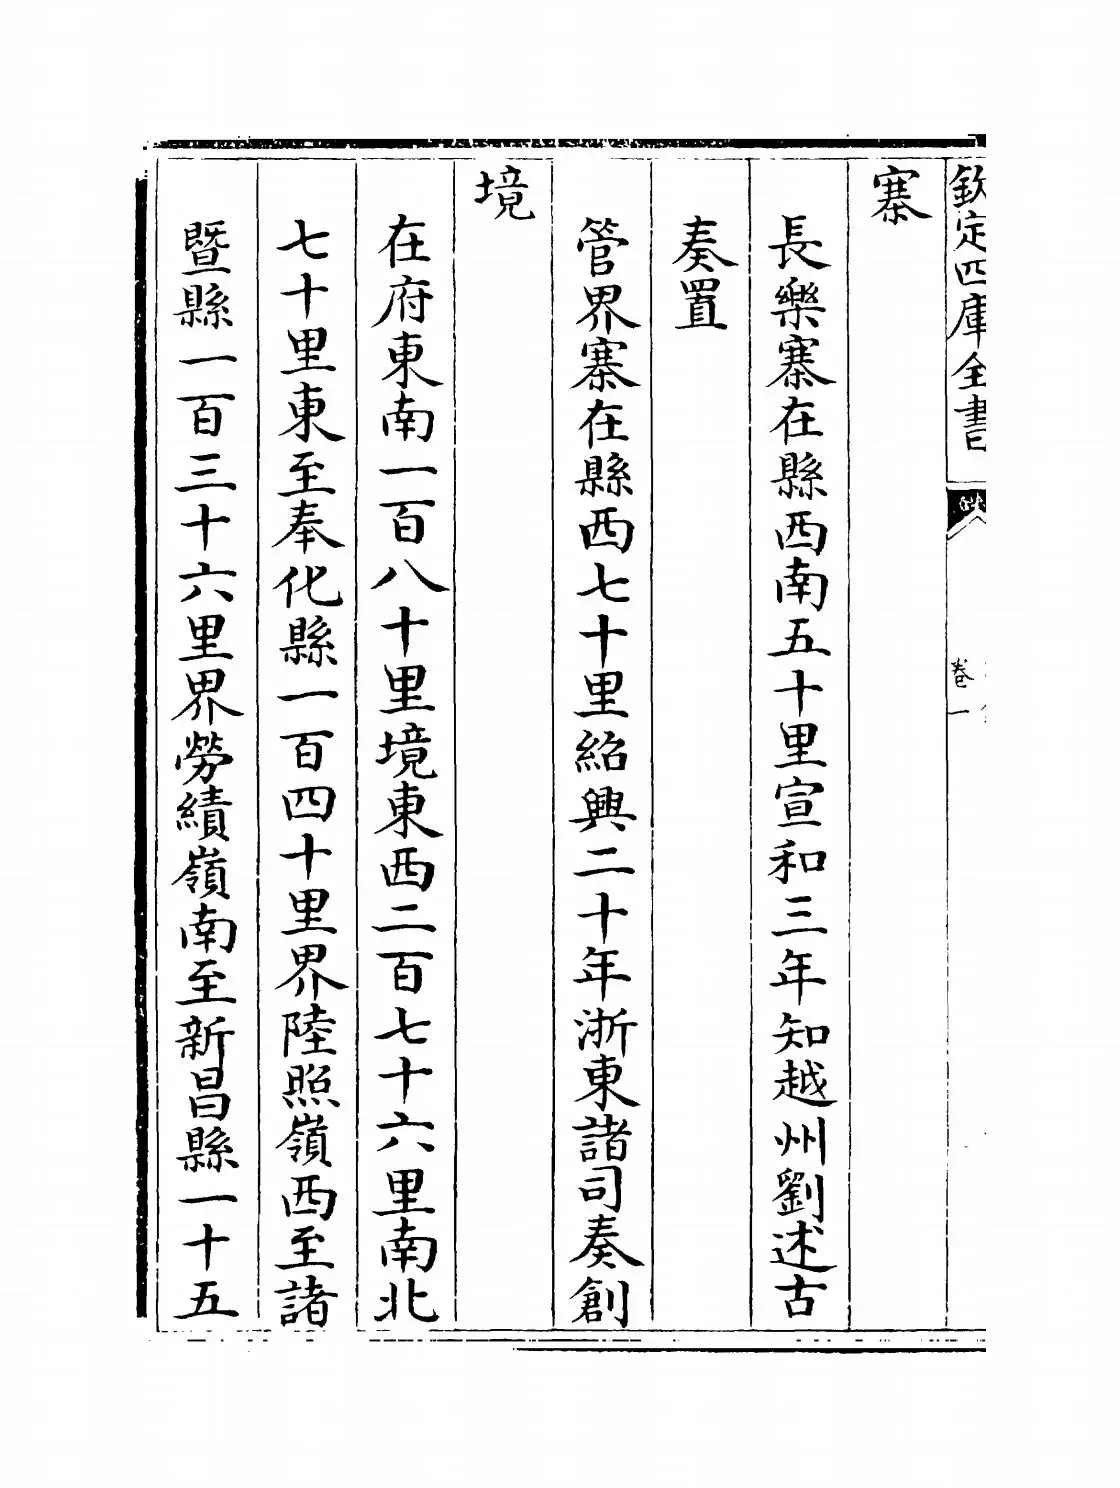 欽定四庫全書
卷一
寨
長樂寨在縣西南五十里宣和三年知越州劉述古
奏置
管界寨在縣西七十里紹興二十年浙東諸司奏創
境
在府東南一百八十里境東西二百七十六里南北
七十里東至奉化縣一百四十里界陸照嶺西至諸
暨縣一百三十六里界勞績嶺南至新昌縣一十五